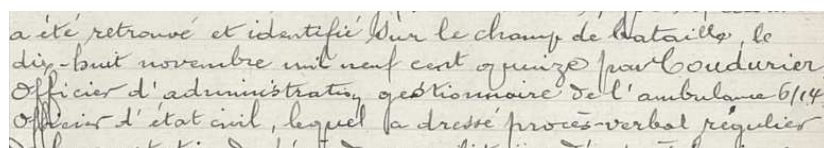 a été retrouvé et identifié sur le champ de bataille, le
dix-huit novembre mil neuf cent quinze par Coudurier,
Officier d'administration gestionnaire de l'ambulance 6/14,
Officier d'état civil, lequel a dressé procès-verbal régulier